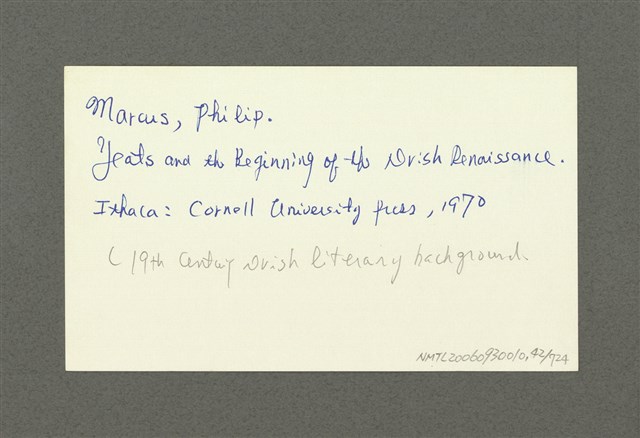 Marcus, Philip.
Yeats and the Beginning of the Irish Renaissance.
Ithaca: Cornell University Press, 1970
( 19th Century Irish literary background.
NMTL20060930010,42/724